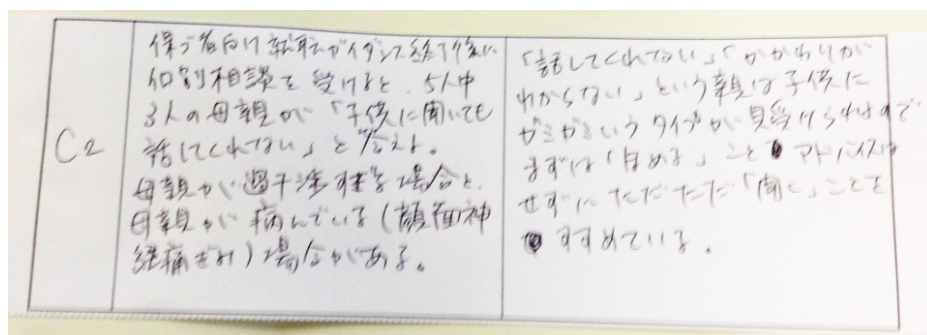 C2
保護者向け就職ガイダンス終了後に
個別相談を受けると、5人中
3人の母親が「子供に聞いても
話してくれない」と答えた。
母親が過干渉すぎる場合と、
母親が病んでいる(顔面神
経痛ぎみ)場合がある。
「話してくれない」「かかわりが
わからない」という親は子供に
ガミガミいうタイプが見受けられるので
まずは「ほめる」こと アドバイスは
せずにただただ「聞く」ことを
すすめている。